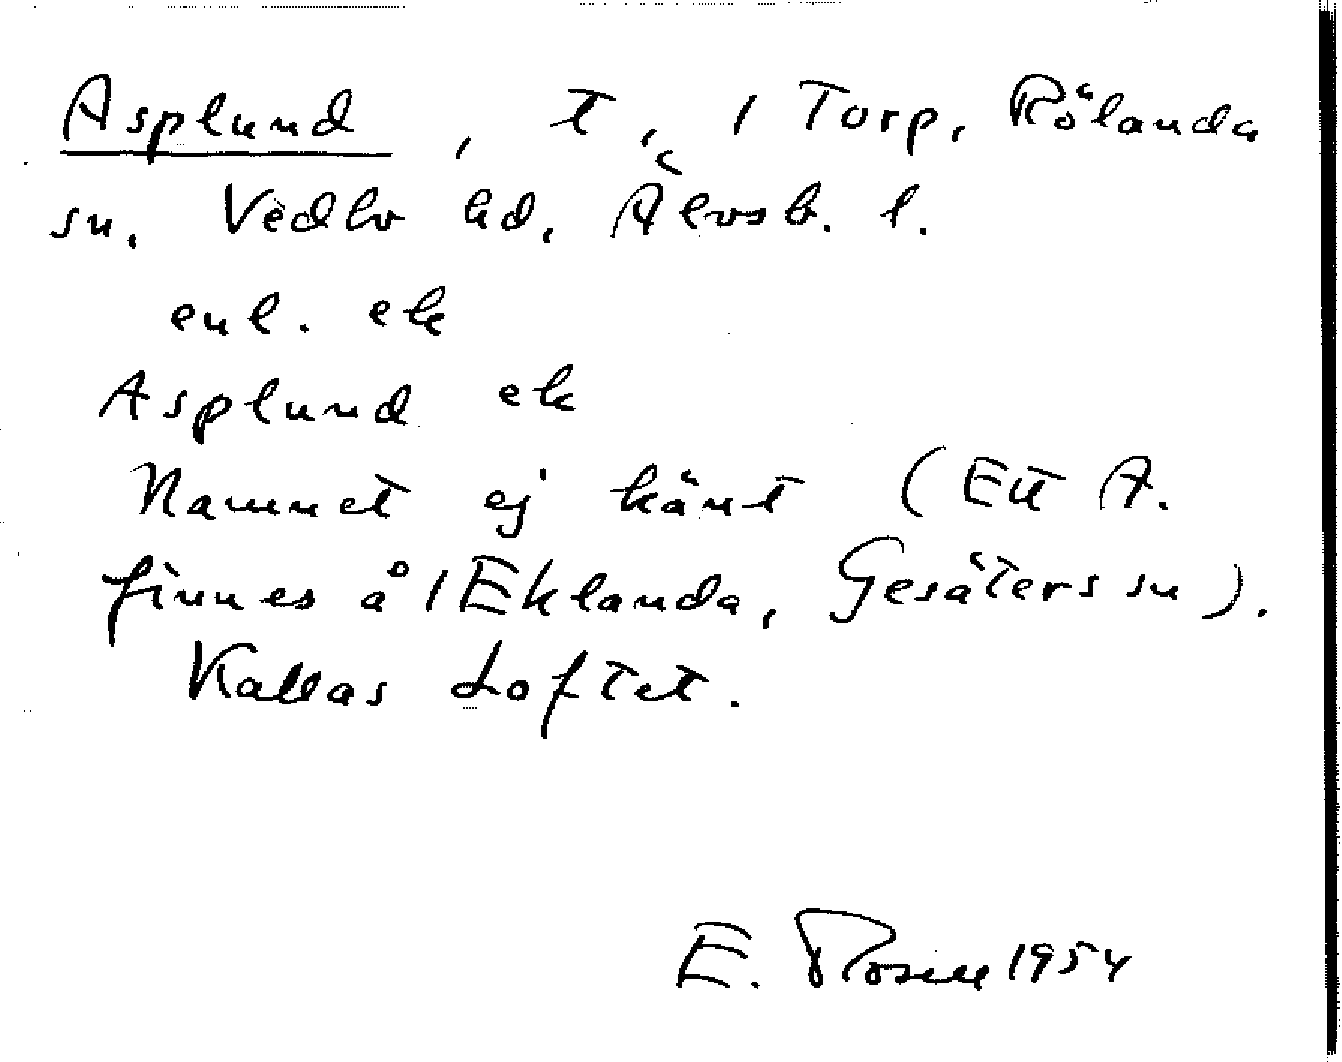 Asplund, t, 1 Torp, Rölanda
sn. Vedbo hd, Älvsb. l.
enl. ek
Asplund ek
Namnet ej känt (Ett A.
finnes å 1 Eklanda, Gesäters sn).
Kallas Loftet.
E. Rosell 1954